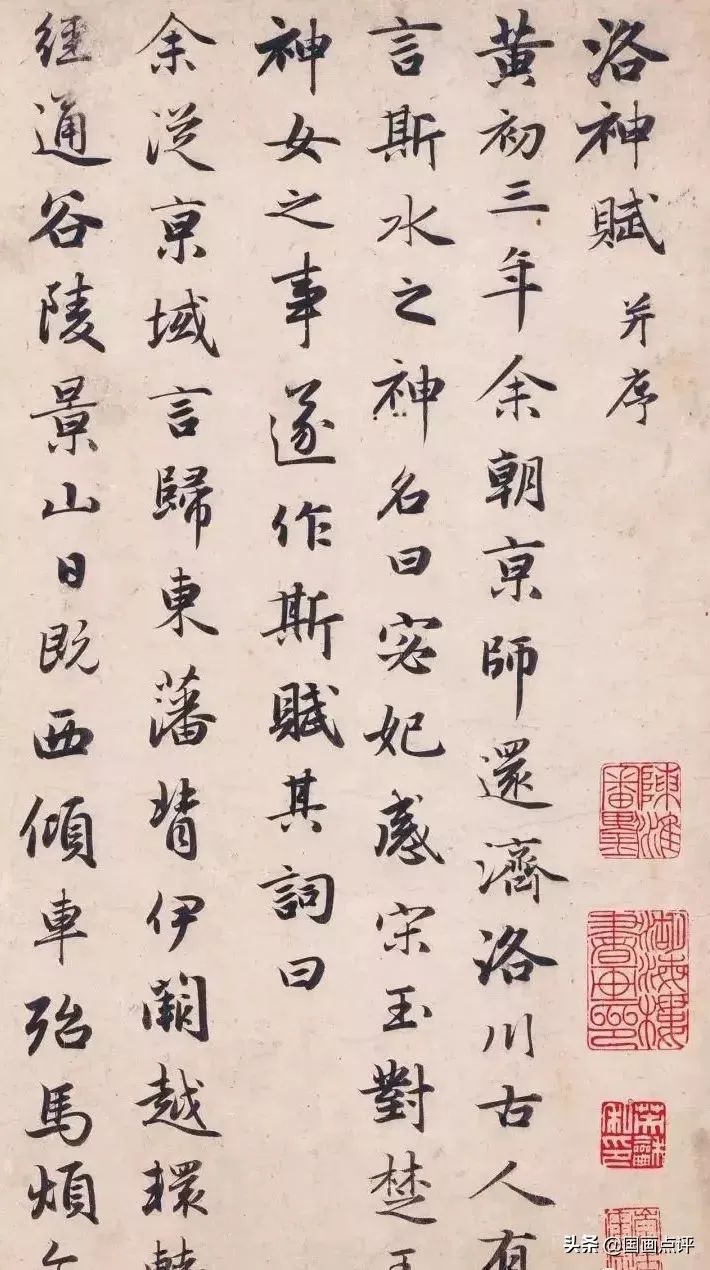 洛神賦并序
黄初三年余朝京師還濟洛川古人有
言斯水之神名曰宓妃感宋玉對楚王
神女之事遂作斯賦其詞曰
余從京域言歸東藩背伊闕越轘轅
經通谷陵景山日既西傾車殆馬煩
陳淮審墨
書画印
頭条 @国画点评